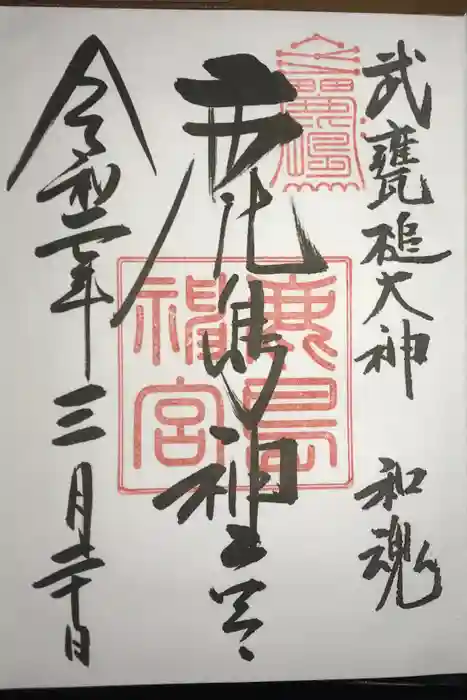 武甕槌大神 和魂
鹿島神宮
令和二年三月二十日
鹿島
神宮